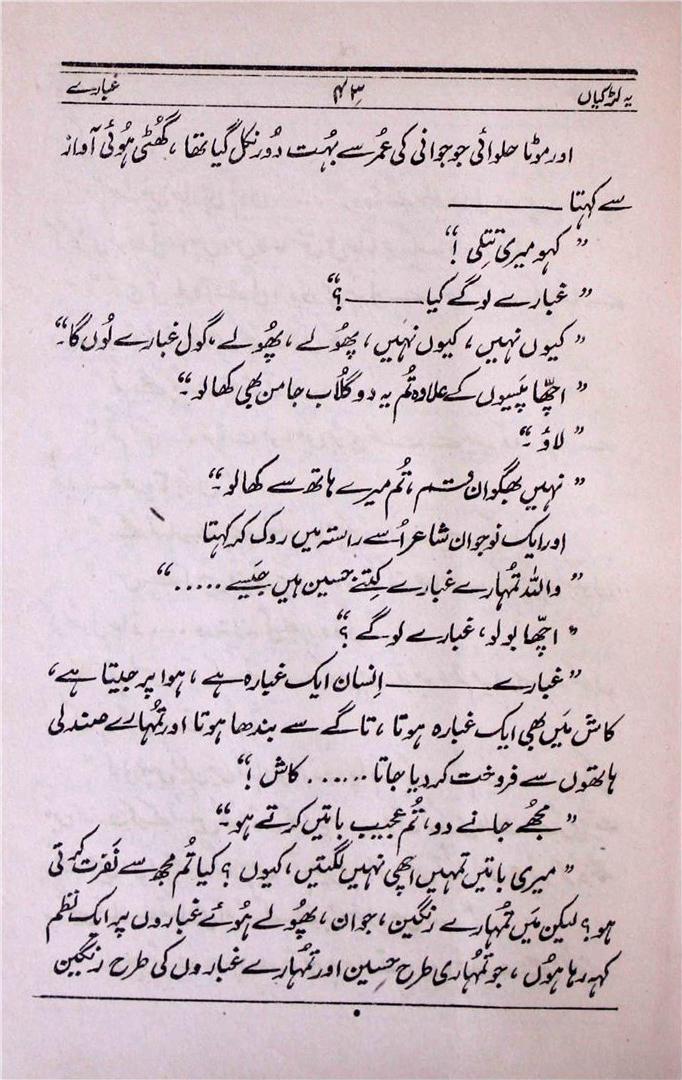 یہ لڑکیاں ۴۳ غبارے
اور موٹا حلوائی جو جوانی کی عمُر سے بہُت دُور نکل گیا تھا، گھُٹی ہوُئی آواز
سے کہتا ———
” کہو میری تتلی !“
” غبارے لو گے کیا ——— ؟“
” کیوں نہیں، کیوں نہیں، پھوُلے، پھوُلے، گول غبارے لوُں گا۔“
” اچھّا پیَسیوں کے علاوہ تمُ یہ دو گلُاب جامن بھی کھا لو۔“
” لاؤ۔“
” نہیں بھگوان قسم، تمُ میرے ہاتھ سے کھا لو۔“
اور ایک نوجوان شاعر اُسے راستہ میں روک کر کہتا
” واللہ تمُہارے غبارے کِتنے حسین ہیں جیَسے . . . . . “
” اچھّا بولو، غبارے لو گے ؟“
” غبارے ——— اِنسان ایک غبارہ ہے، ہوا پر جیتا ہے،
کاش میَں بھی ایک غبارہ ہوتا، تاگے سے بندھا ہوتا اور تمُہارے صندلی
ہاتھوں سے فروخت کر دیا جاتا . . . . . . کاش !“
” مجھُے جانے دو، تمُ عجیب باتیں کرتے ہو۔“
” میری باتیں تمہیں اچھی نہیں لگتیں، کیوں ؟ کیا تمُ مجھ سے نفَرت کرتی
ہو؟ لیکن میَں تمُہارے رنگین، جوان، پھوُلے ہوُئے غباروں پر ایک نظم
کہہ رہا ہوُں، جو تمُہاری طرح حسین اور تمُہارے غباروں کی طرح رنگین